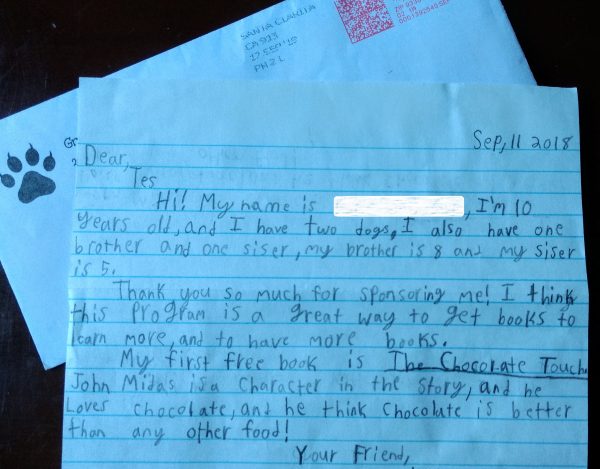 SANTA CLARITA
CA 913
17 SEP '18
PM 2 L
Gr
Sep, 11 2018
Dear,
Tes
Hi! My name is , I'm 10
years old, and I have two dogs, I also have one
brother and one siser, my brother is 8 and my siser
is 5.
Thank you so much for sponsoring me! I think
this program is a great way to get books to
learn more, and to have more books.
My first free book is The Chocolate Touch
John Midas is a character in the story, and he
Loves chocolate, and he think chocolate is better
than any other food!
Your Friend,